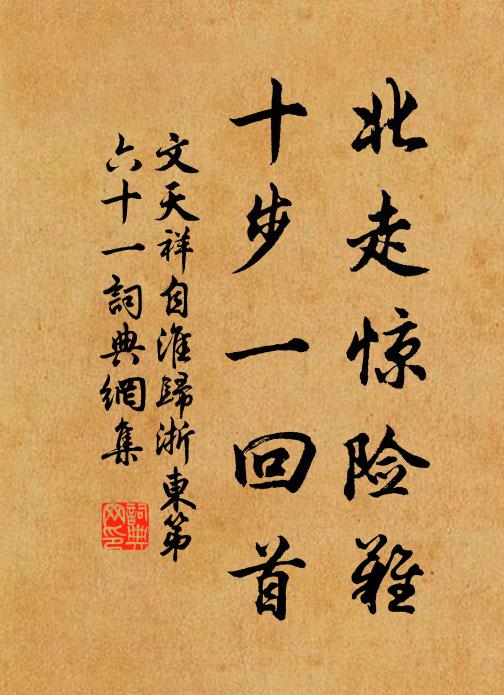 北走惊险难
十步一回首
文天祥自淮歸浙東第
六十一詞典網集
詞典
网印